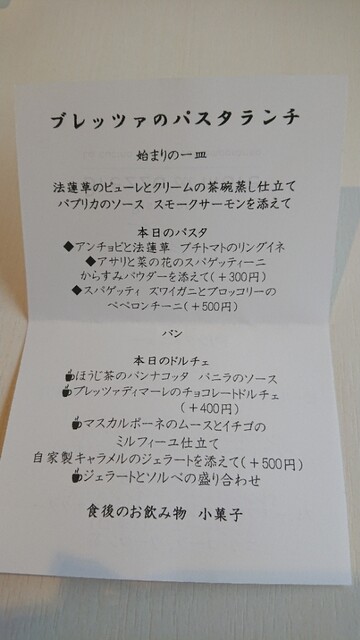 ブレッツァのパスタランチ
始まりの一皿
法蓮草のピューレとクリームの茶碗蒸し仕立て
パプリカのソース スモークサーモンを添えて
本日のパスタ
◆アンチョビと法蓮草 プチトマトのリングイネ
◆アサリと菜の花のスパゲッティーニ
からすみパウダーを添えて(+300円)
◆スパゲッティ ズワイガニとブロッコリーの
ペペロンチーニ(+500円)
パン
本日のドルチェ
☕ほうじ茶のパンナコッタ バニラのソース
☕ブレッツァディマーレのチョコレートドルチェ
(+400円)
☕マスカルポーネのムースとイチゴの
ミルフィーユ仕立て
自家製キャラメルのジェラートを添えて(+500円)
☕ジェラートとソルベの盛り合わせ
食後のお飲み物 小菓子